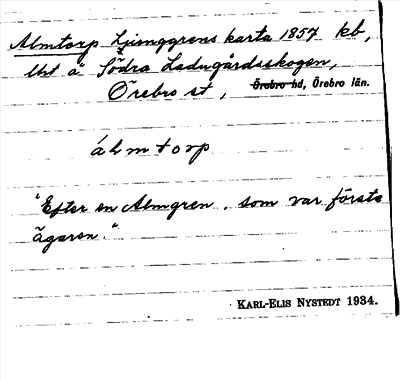 Almtorp Ljunggrens karta 1857 kb,
lht å Södra Ladugårdsskogen,
Örebro st, Örebro hd, Örebro län.
álmtorp
"Efter en Almgren, som var första
ägaren."
KARL-ELIS NYSTEDT 1934.